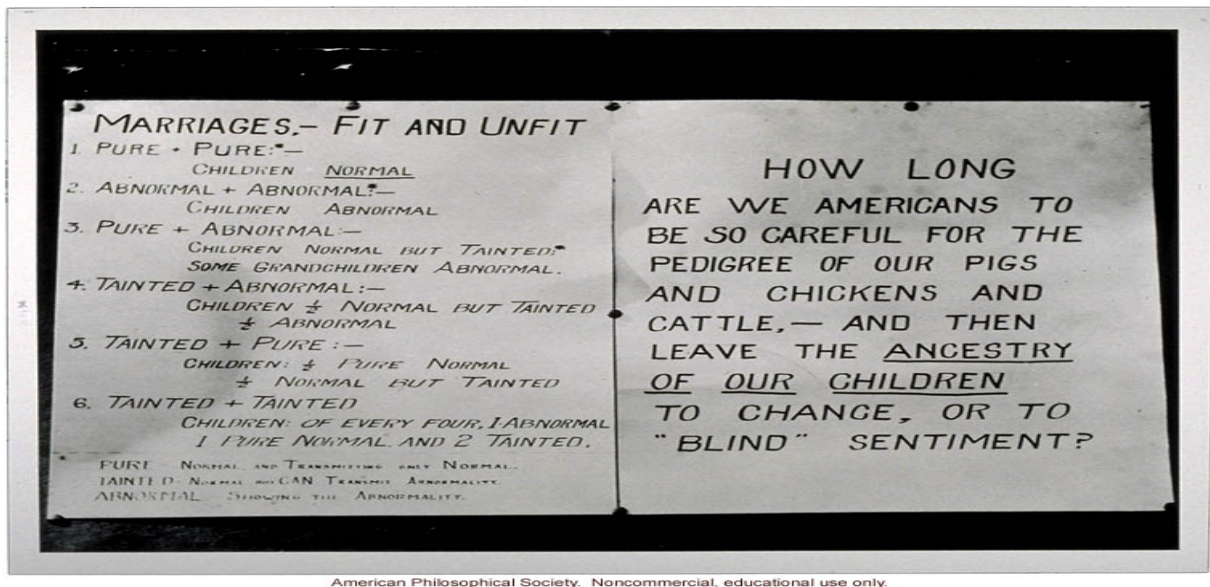 MARRIAGES,— FIT AND UNFIT
1. PURE + PURE:*—
CHILDREN NORMAL
2. ABNORMAL + ABNORMAL:*—
CHILDREN ABNORMAL
3. PURE + ABNORMAL:—
CHILDREN NORMAL BUT TAINTED:*
SOME GRANDCHILDREN ABNORMAL.
4. TAINTED + ABNORMAL:—
CHILDREN ½ NORMAL BUT TAINTED
½ ABNORMAL
5. TAINTED + PURE:—
CHILDREN: ½ PURE NORMAL
½ NORMAL BUT TAINTED
6. TAINTED + TAINTED
CHILDREN: OF EVERY FOUR, 1 ABNORMAL
1 PURE NORMAL, AND 2 TAINTED.
PURE - NORMAL AND TRANSMITTING ONLY NORMAL.
TAINTED - NORMAL BUT CAN TRANSMIT ABNORMALITY.
ABNORMAL SHOWING THE ABNORMALITY.
HOW LONG
ARE WE AMERICANS TO
BE SO CAREFUL FOR THE
PEDIGREE OF OUR PIGS
AND CHICKENS AND
CATTLE,— AND THEN
LEAVE THE ANCESTRY
OF OUR CHILDREN
TO CHANCE, OR TO
"BLIND" SENTIMENT?
American Philosophical Society. Noncommercial, educational use only.